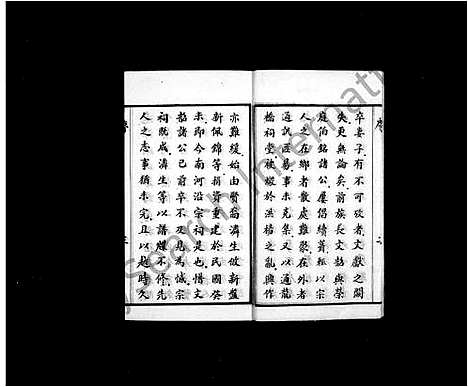 序
卒妻子有不可攷者文獻之闕
失更無論矣前族長文懿與榮
庭伯銘諸公屢倡續葺輒以宗
人之在鄉者散處難聚在外者
通訊匪易事未克集又以通龍
橋祠堂被燬於洪楊之亂興作
亦難緩始由賢裔濟生倣新盤
新佩錦等捐資重建於民國癸
未即今南河沿宗祠是也惜文
韜諸公已前卒不及見為誠宗
祠既成濟生等以譜牒不修先
人之志事猶未完且以越時久